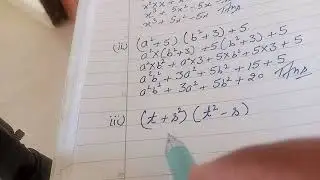 x³ + 5x² - 5x Ans
(ii) (a²+5) (b²+3) +5
a²×(b²+3) +5(b²+3) +5
a²×b² + a²×3 + 5×b² + 5×3 + 5
a²b² + 3a² + 5b² + 15 + 5
a²b² + 3a² + 5b² + 20 Ans
iii) (t + s²) (t² - s)